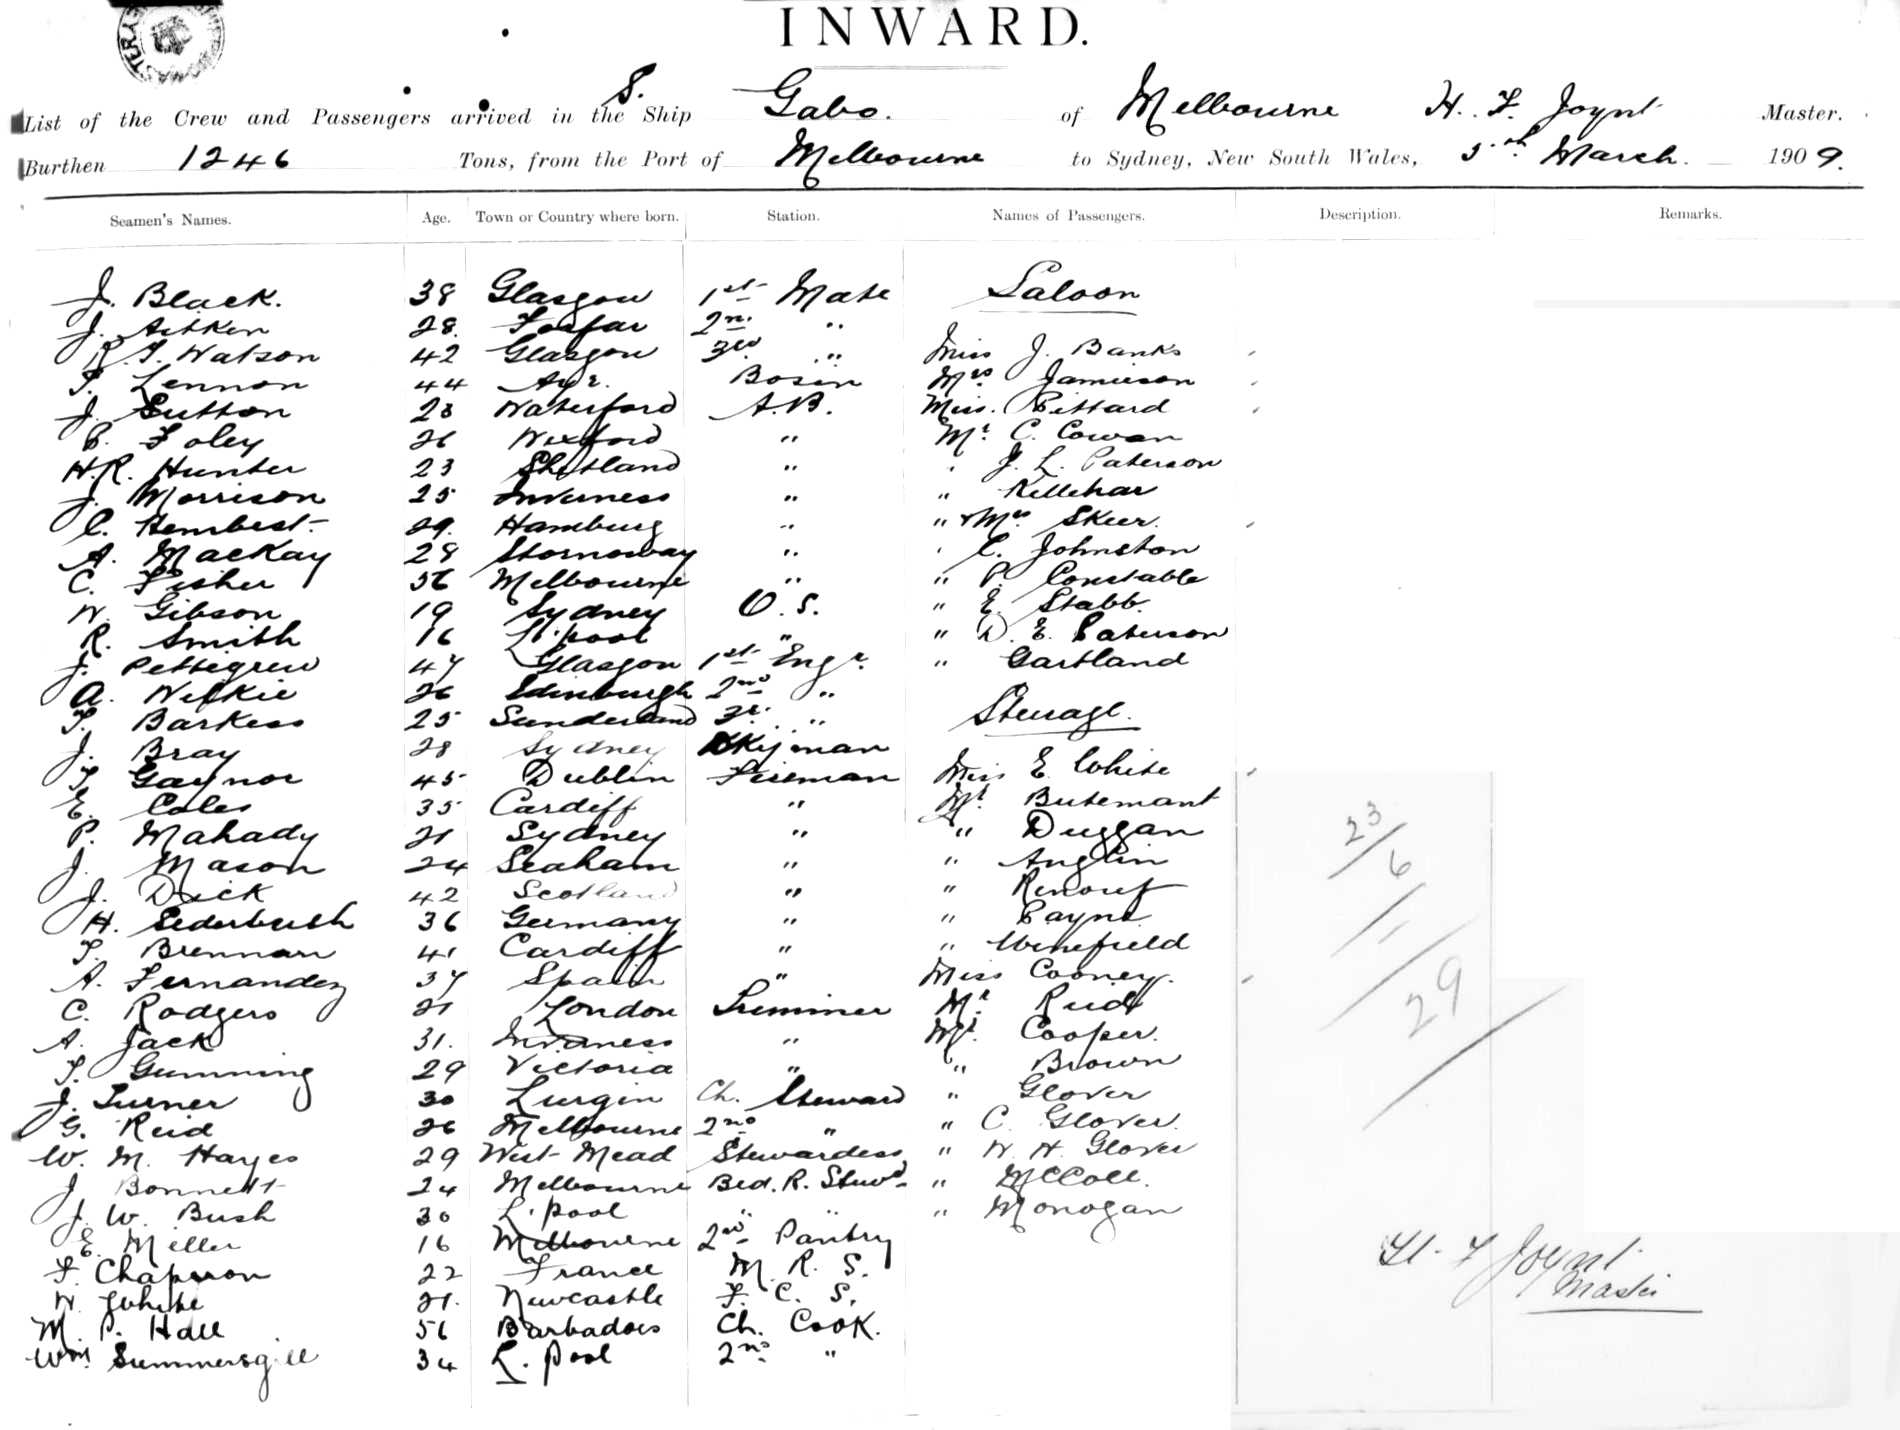 INWARD.
List of the Crew and Passengers arrived in the S. Ship Gabo. of Melbourne H. F. Joynt Master.
Burthen 1246 Tons, from the Port of Melbourne to Sydney, New South Wales, 5th March. 1909.
Seamen's Names. Age. Town or Country where born. Station. Names of Passengers. Description. Remarks.
J. Black. 38 Glasgow 1st Mate Saloon
J. Aitken 28. Forfar 2nd "
R. J. Watson 42 Glasgow 3rd " Miss J. Banks
T. Lennon 44 Ayr. Bosin Mrs Jamieson
J. Sutton 23 Waterford A.B. Miss. Pittard
P. Foley 26 Wexford " Mr. C. Cowan
H.R. Hunter 23 Shetland " " J. L. Paterson
J. Morrison 25 Inverness " " Kellehar
C. Hembest 29. Hamburg " " & Mrs Skeer.
A. MacKay 28 Stornoway " " C. Johnston
C. Fisher 56 Melbourne " " P. Constable
W. Gibson 19 Sydney O.S. " E. Stabb.
R. Smith 16 L'pool " " D. E. Paterson
J. Pettegrew 47 Glasgow 1st Engr. " Gartland
A. Wilkie 26 Edinburgh 2nd "
T. Barkess 25 Sunderland 3r. " Steerage.
J. Bray 28 Sydney Dkyman
T. Gaynor 45 Dublin Fireman Miss E. White
E. Coles 35 Cardiff " Mr. Butemant
P. Mahady 21 Sydney " " Duggan
J. Mason 24 Seaham " " Anglin
J. Dick 42 Scotland " " Renouf
H. Sederbush 36 Germany " " Payne
T. Brennan 41 Cardiff " " Winefield
A. Fernandez 37 Spain " Miss Cooney.
C. Rodgers 21 London Trimmer Mr Reid
A. Jack 31. Inverness " Mr. Cooper.
T. Gumming 29 Victoria " " Brown
J. Turner 30 Lurgin Ch. Steward " Glover
G. Reid 26 Melbourne 2nd " " C. Glover.
W. M. Hayes 29 West Mead Stewardess " W. H. Glover
J Bonnett 24 Melbourne Bed. R. Stewd. " McColl.
J. W. Bush 30 L'pool " " " Monogan
E. Miller 16 Melbourne 2nd Pantry
F. Chaperon 22 France M. R. S.
W. White 21. Newcastle F. C. S.
M. P. Hall 56 Barbadoes Ch. Cook.
Wm. Summersgill 34 L.pool 2nd "
23
6
29
H. F Joynt
Master